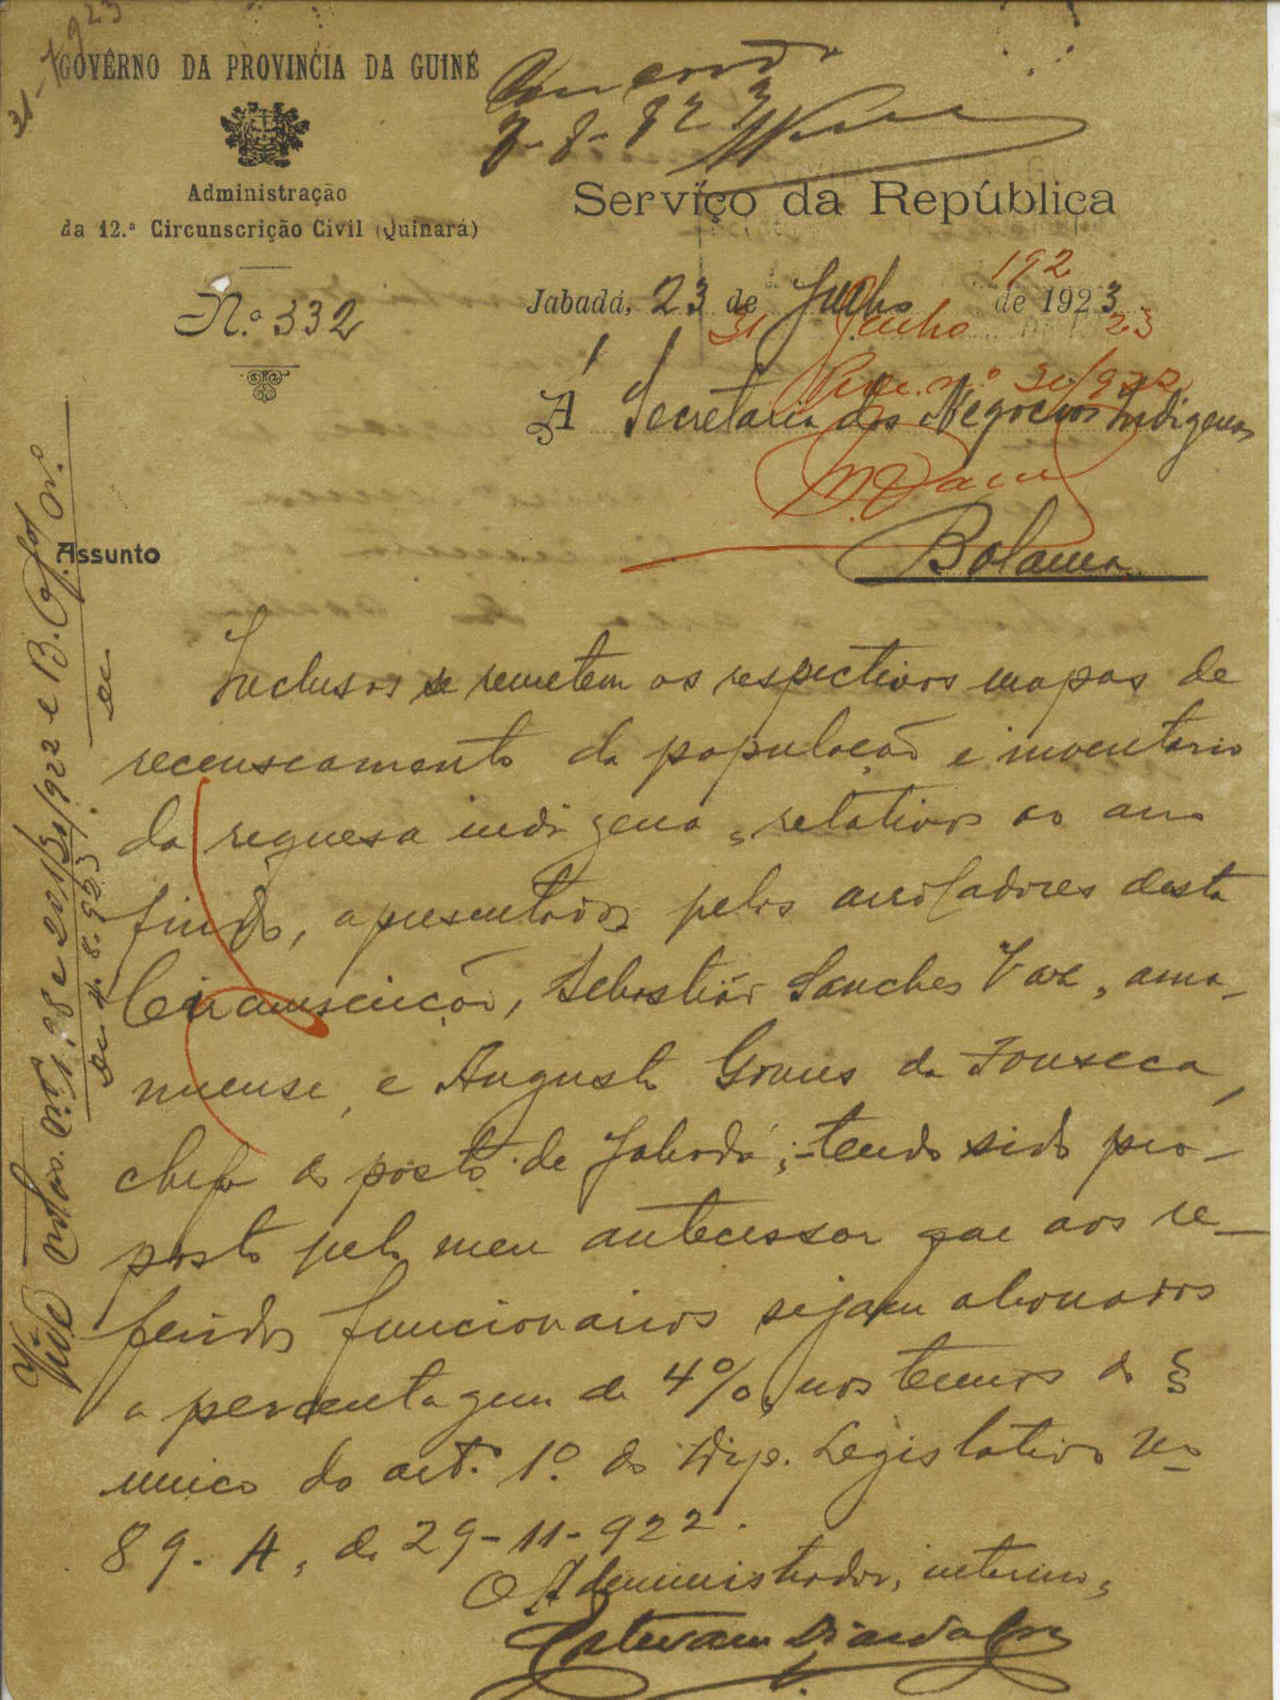 31-7-923
GOVÊRNO DA PROVINCIA DA GUINÉ
Administração
da 12.ª Circunscrição Civil (Quinará)
N.º 332
7-8-923
Serviço da República
Jabadá, 23 de Julho de 1923
192
31 Julho 23
Á Secretaria dos Negocios Indigenas
Bolama
Assunto
Inclusos se remetem os respectivos mapas de
recenseamento da população e inventario
da riquesa indigena, relativos ao ano
findo, apresentados pelos arroladores desta
Circunscrição, Sebastião Sanches Vaz, ama-
nuense, e Augusto Gomes da Fonseca,
chefe do posto de Jabadá; tendo sido pro-
posto pelo meu antecessor que aos re-
feridos funcionarios sejam abonados
a percentagem de 4%, nos termos do §
unico do art.º 1.º do Dip. Legislativo No
89. A, de 29-11-922.
O Administrador, interino,
Vide notas n.os 198 e 201/30/922 e B. Of. n.º
em 4.8.923. em